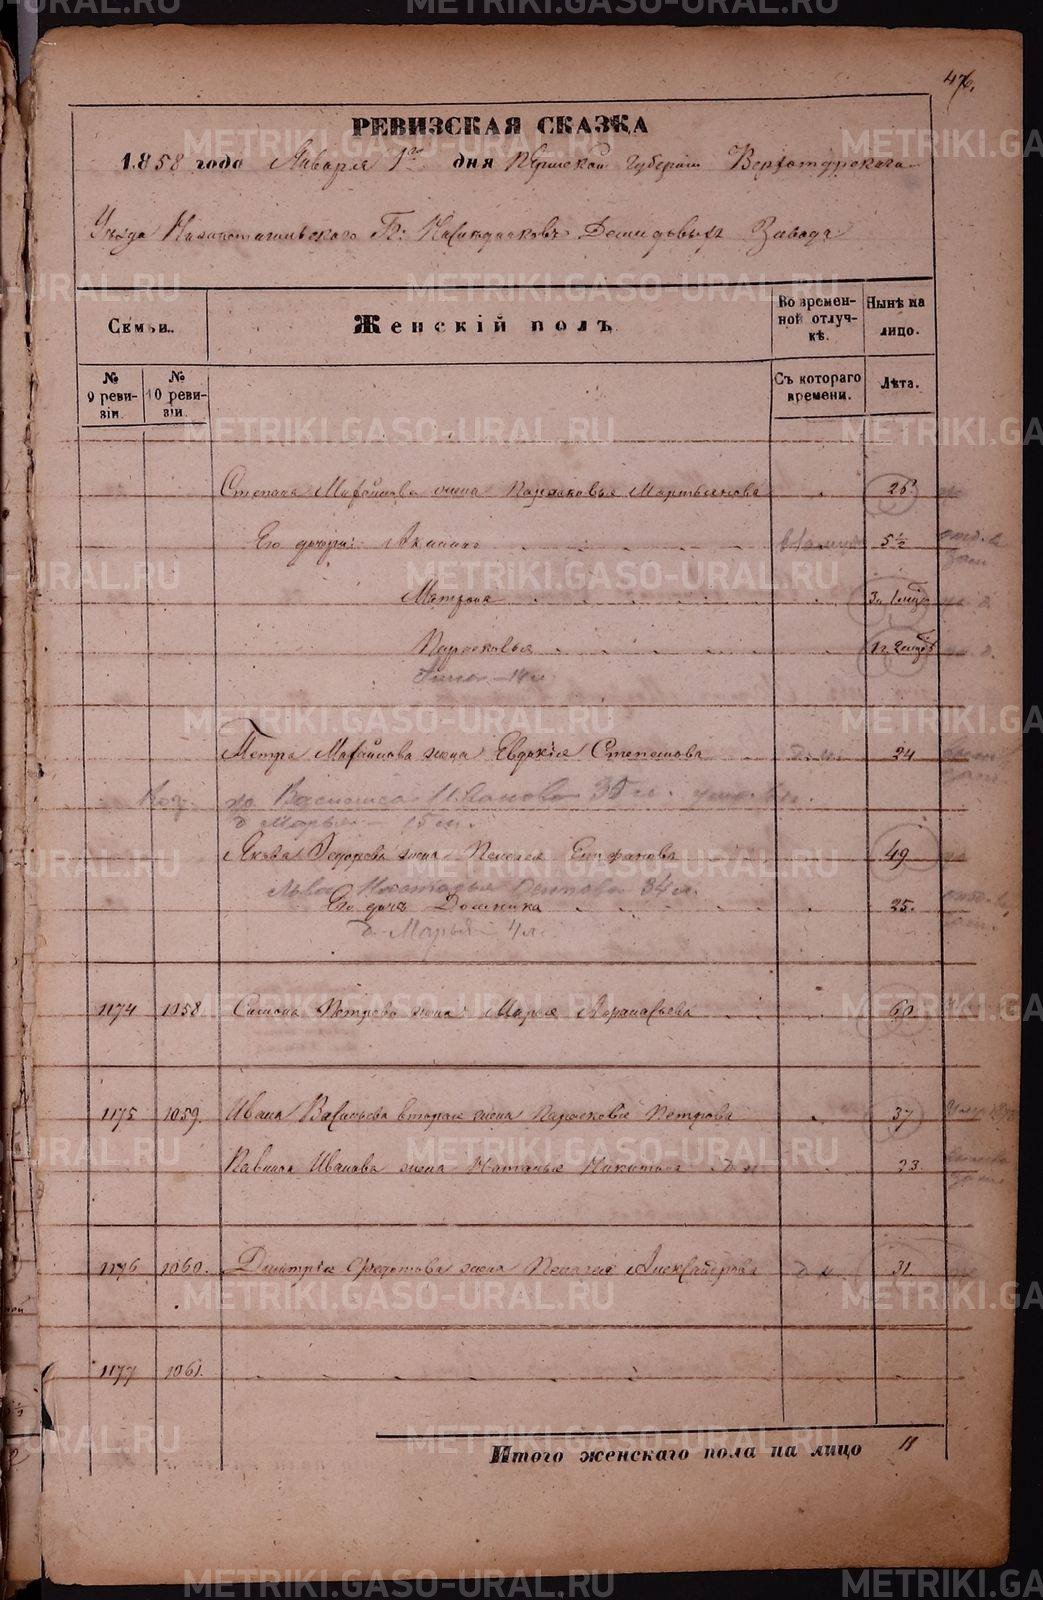 476.
РЕВИЗСКАЯ СКАЗКА
1858 года Января 1го дня Пермской губернии Верхотурскаго
Уѣзда Нижнетагильскаго Гг: Наслѣдниковъ Демидовыхъ Завода
Семьи. Женскій полъ Во временной отлучкѣ. Нынѣ на лицо.
№ 9 ревизіи. № 10 ревизіи. Съ котораго времени. Лѣта.
Степана Михайлова жена Парасковья Мартьянова 26
Его дочери: Акилина 5½
Матрона 3 1 мѣс
Парасковья 1 г. 2 мѣс
Анна - 14
Петра Михайлова жена Евдокія Степанова 24
ж Василиса Иванова 35 л.
д Марья - 15 л.
Якова Федорова жена Пелагея Епифанова 49
Льва 34 л.
Его дочь Домника 25.
д. Марья 4 л.
1174 1058 Симона Петрова жена Марья Афанасьева 60
1175 1059. Ивана Васильева вторая жена Парасковья Петрова 37
Павла Иванова жена Наталья Никитина 23.
1176 1060. Дмитрія Федотова жена Пелагея Александрова 31.
1177 1061.
Итого женскаго пола на лицо 11
METRIKI.GASO-URAL.RU